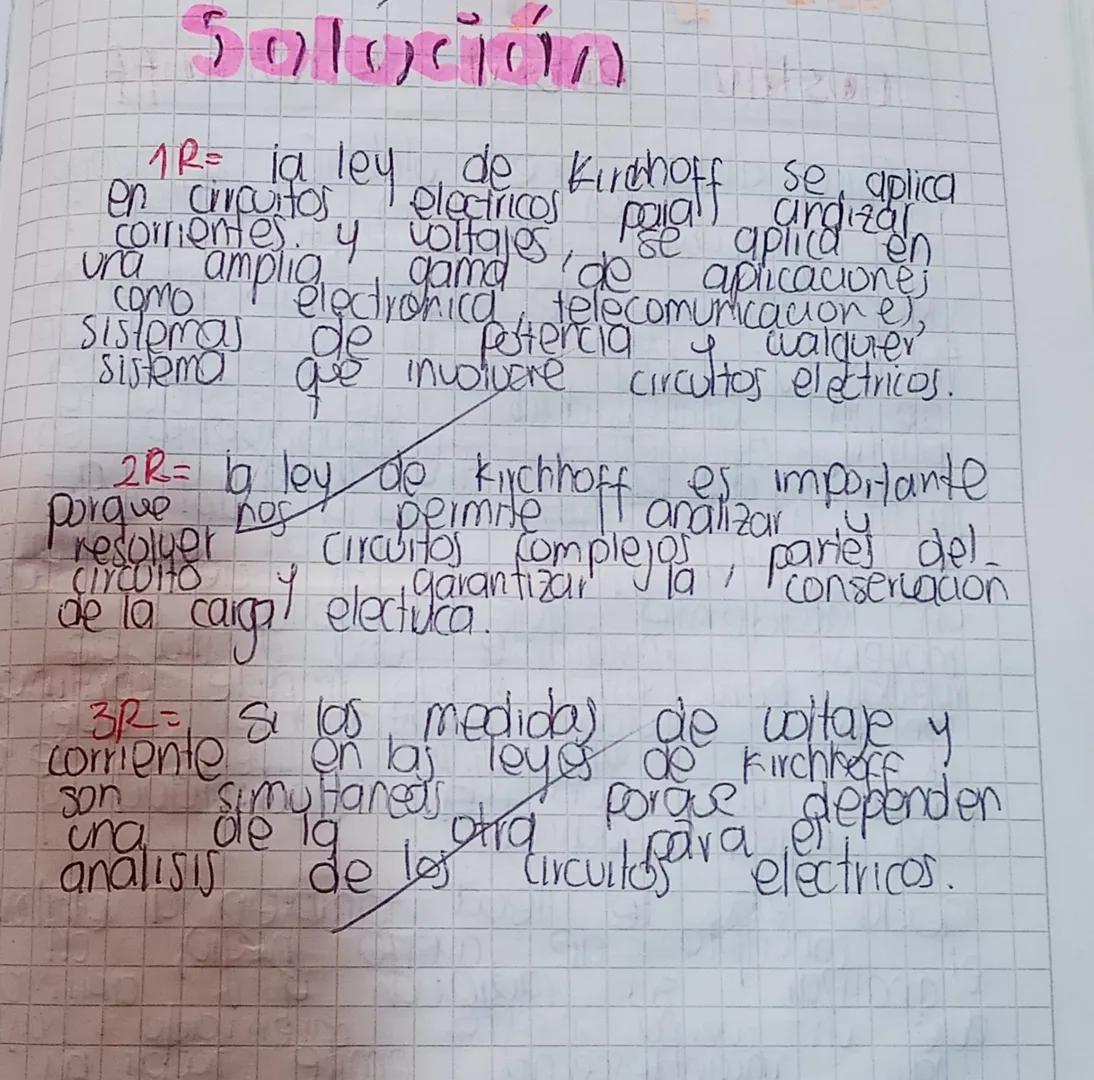 Solución
1R= la ley de Kirchhoff se aplica
en circuitos electricos para analizar
corrientes. y voltajes, se aplica en
una amplia gama de aplicaciones
como electronica, telecomunicaciones,
sistemas de potencia y cualquier
sistema que involucre circuitos electricos.
2R= la ley de Kirchhoff es importante
porque nos permite analizar y
resolver circuitos complejos, partes del
circuito y garantizar la conservacion
de la carga electrica.
3R= Si las medidas de voltaje y
corriente en las leyes de Kirchhoff
son simultaneas porque dependen
una de la otra para el
analisis de los circuitos electricos.